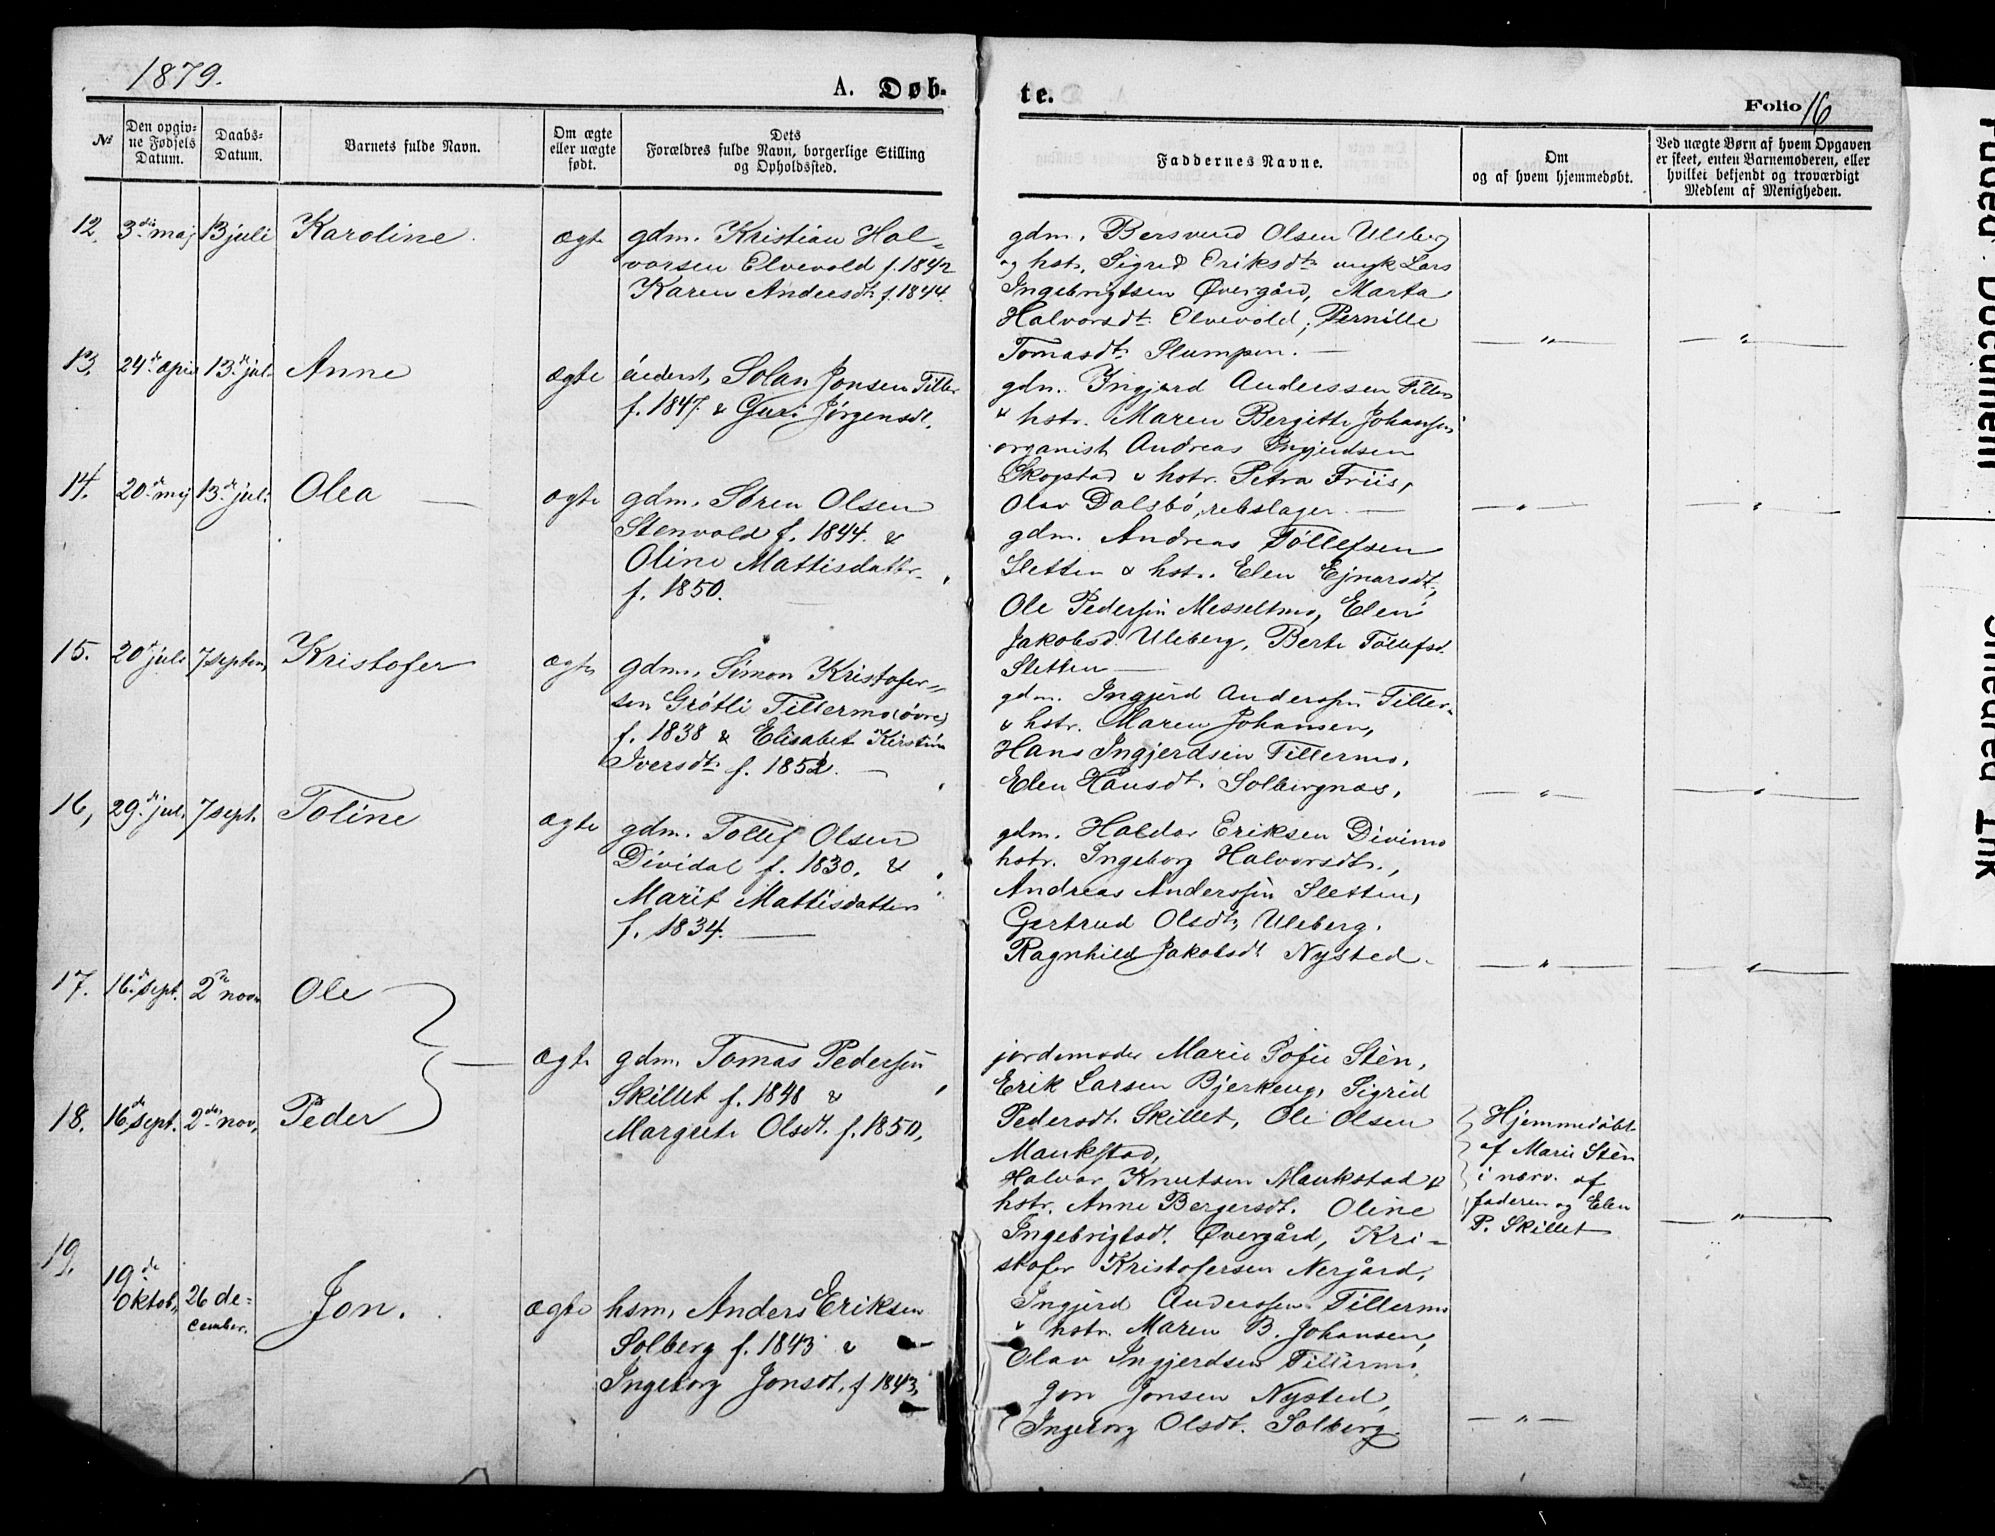 1879.
A. Døb-
te.
Folio 16
№
Den opgiv-
ne Fødsels
Datum.
Daabs-
Datum.
Barnets fulde Navn.
Om ægte
eller uægte
født.
Dets
Forældres fulde Navn, borgerlige Stilling
og Opholdssted.
Faddernes Navne.
Om
og af hvem hjemmedøbt.
Ved uægte Børn af hvem Opgaven
er skeet, enten Barnemoderen, eller
hvilket bekjendt og troværdigt
Medlem af Menigheden.
12. 3die maj 13 juli Karoline ægte
gdm. Kristian Hal-
vorsen Elvevold f. 1842
Karen Andersdt. f. 1844.
gdm. Bersvend Olsen Uleberg
og hstr. Sigrid Eriksdtr. ungk Lars
Ingebrigtsen Øvergård, Marta
Halvorsdt. Elvevold, Pernille
Tomasdt. Slumpen. —
— " —
— " —
13. 24de april 13de juli Anne ægte
Solan Jonsen Tiller
f. 1847. & Guri Jørgensdt.
gdm. Ingjerd Anderssen Tiller
& hstr. Maren Bergitte Johansen
organist Andreas Ingjerdsen
Skogstad & hstr. Petra Friis,
Olav Dalsbø, rebslager. —
— " —
— " —
14. 20de maj 13de juli Olea — ægte
gdm. Søren Olsen
Stenvold f. 1844. &
Oline Mattisdatter
f. 1850.
gdm. Andreas Tøllefsen
Sletten & hstr. Elen Ejnarsdt,
Ole Pederssen Messeltmo, Elen
Jakobsd. Uleberg, Berte Tøllefsd.
Sletten —
15. 20de juli 7 septem. Kristofer ægte
gdm. Simon Kristofer-
sen Grøtli Tillermo (øvre)
f. 1838 & Elisabet Kirstine
Iversdt. f. 1852. —
gdm. Ingjerd Anderssen Tiller-
& hstr. Maren Johansen,
Hans Ingjerdsen Tillermo,
Elen Hansdt. Solbergnæs.
— " —
— " —
16, 29de juli 7 sept. Toline ægte
gdm. Tollef Olsen
Dividal f. 1830. &
Marit Mattisdatter
f. 1834. —
gdm. Haldor Eriksen Divimo
hstr. Ingeborg Halvorsdt.,
Andreas Anderssen Sletten,
Gertrud Olsdt. Uleberg.
Ragnhild Jakobsdt Nysted.
— " —
— " —
17. 16de sept. 2den nov. Ole
ægte
gdm. Tomas Pederssen
Skillet f. 1848 &
Margrete Olsdt. f. 1850,
18. 16de sept. 2den nov. Peder
jordemoder Marie Sofie Stèn,
Erik Larsen Bjerkeng, Sigrid
Pedersdt. Skillet, Ole Olsen
Maukstad,
Halvor Knutsen Maukstad &
hstr. Anne Bergersdt. Oline
Ingebrigtsdt. Øvergård, Kri-
stofer Kristofersen Nergård,
Hjemmedøbt
af Marie Stèn
i nærv. af
faderen og Elen
P. Skillet
— " —
19. 19de oktob. 26 de-
cember. Jon. ægte
hsm. Anders Eriksen
Solberg f. 1843 &
Ingeborg Jonsdt. f 1843,
Ingjerd Anderssen Tillermo
& hstr. Maren B. Johansen,
Olav Ingjerdsen Tillermo,
Jon Jonsen Nysted,
Ingeborg Olsdt. Solberg.
— " —
Faded Document
Smeared Ink